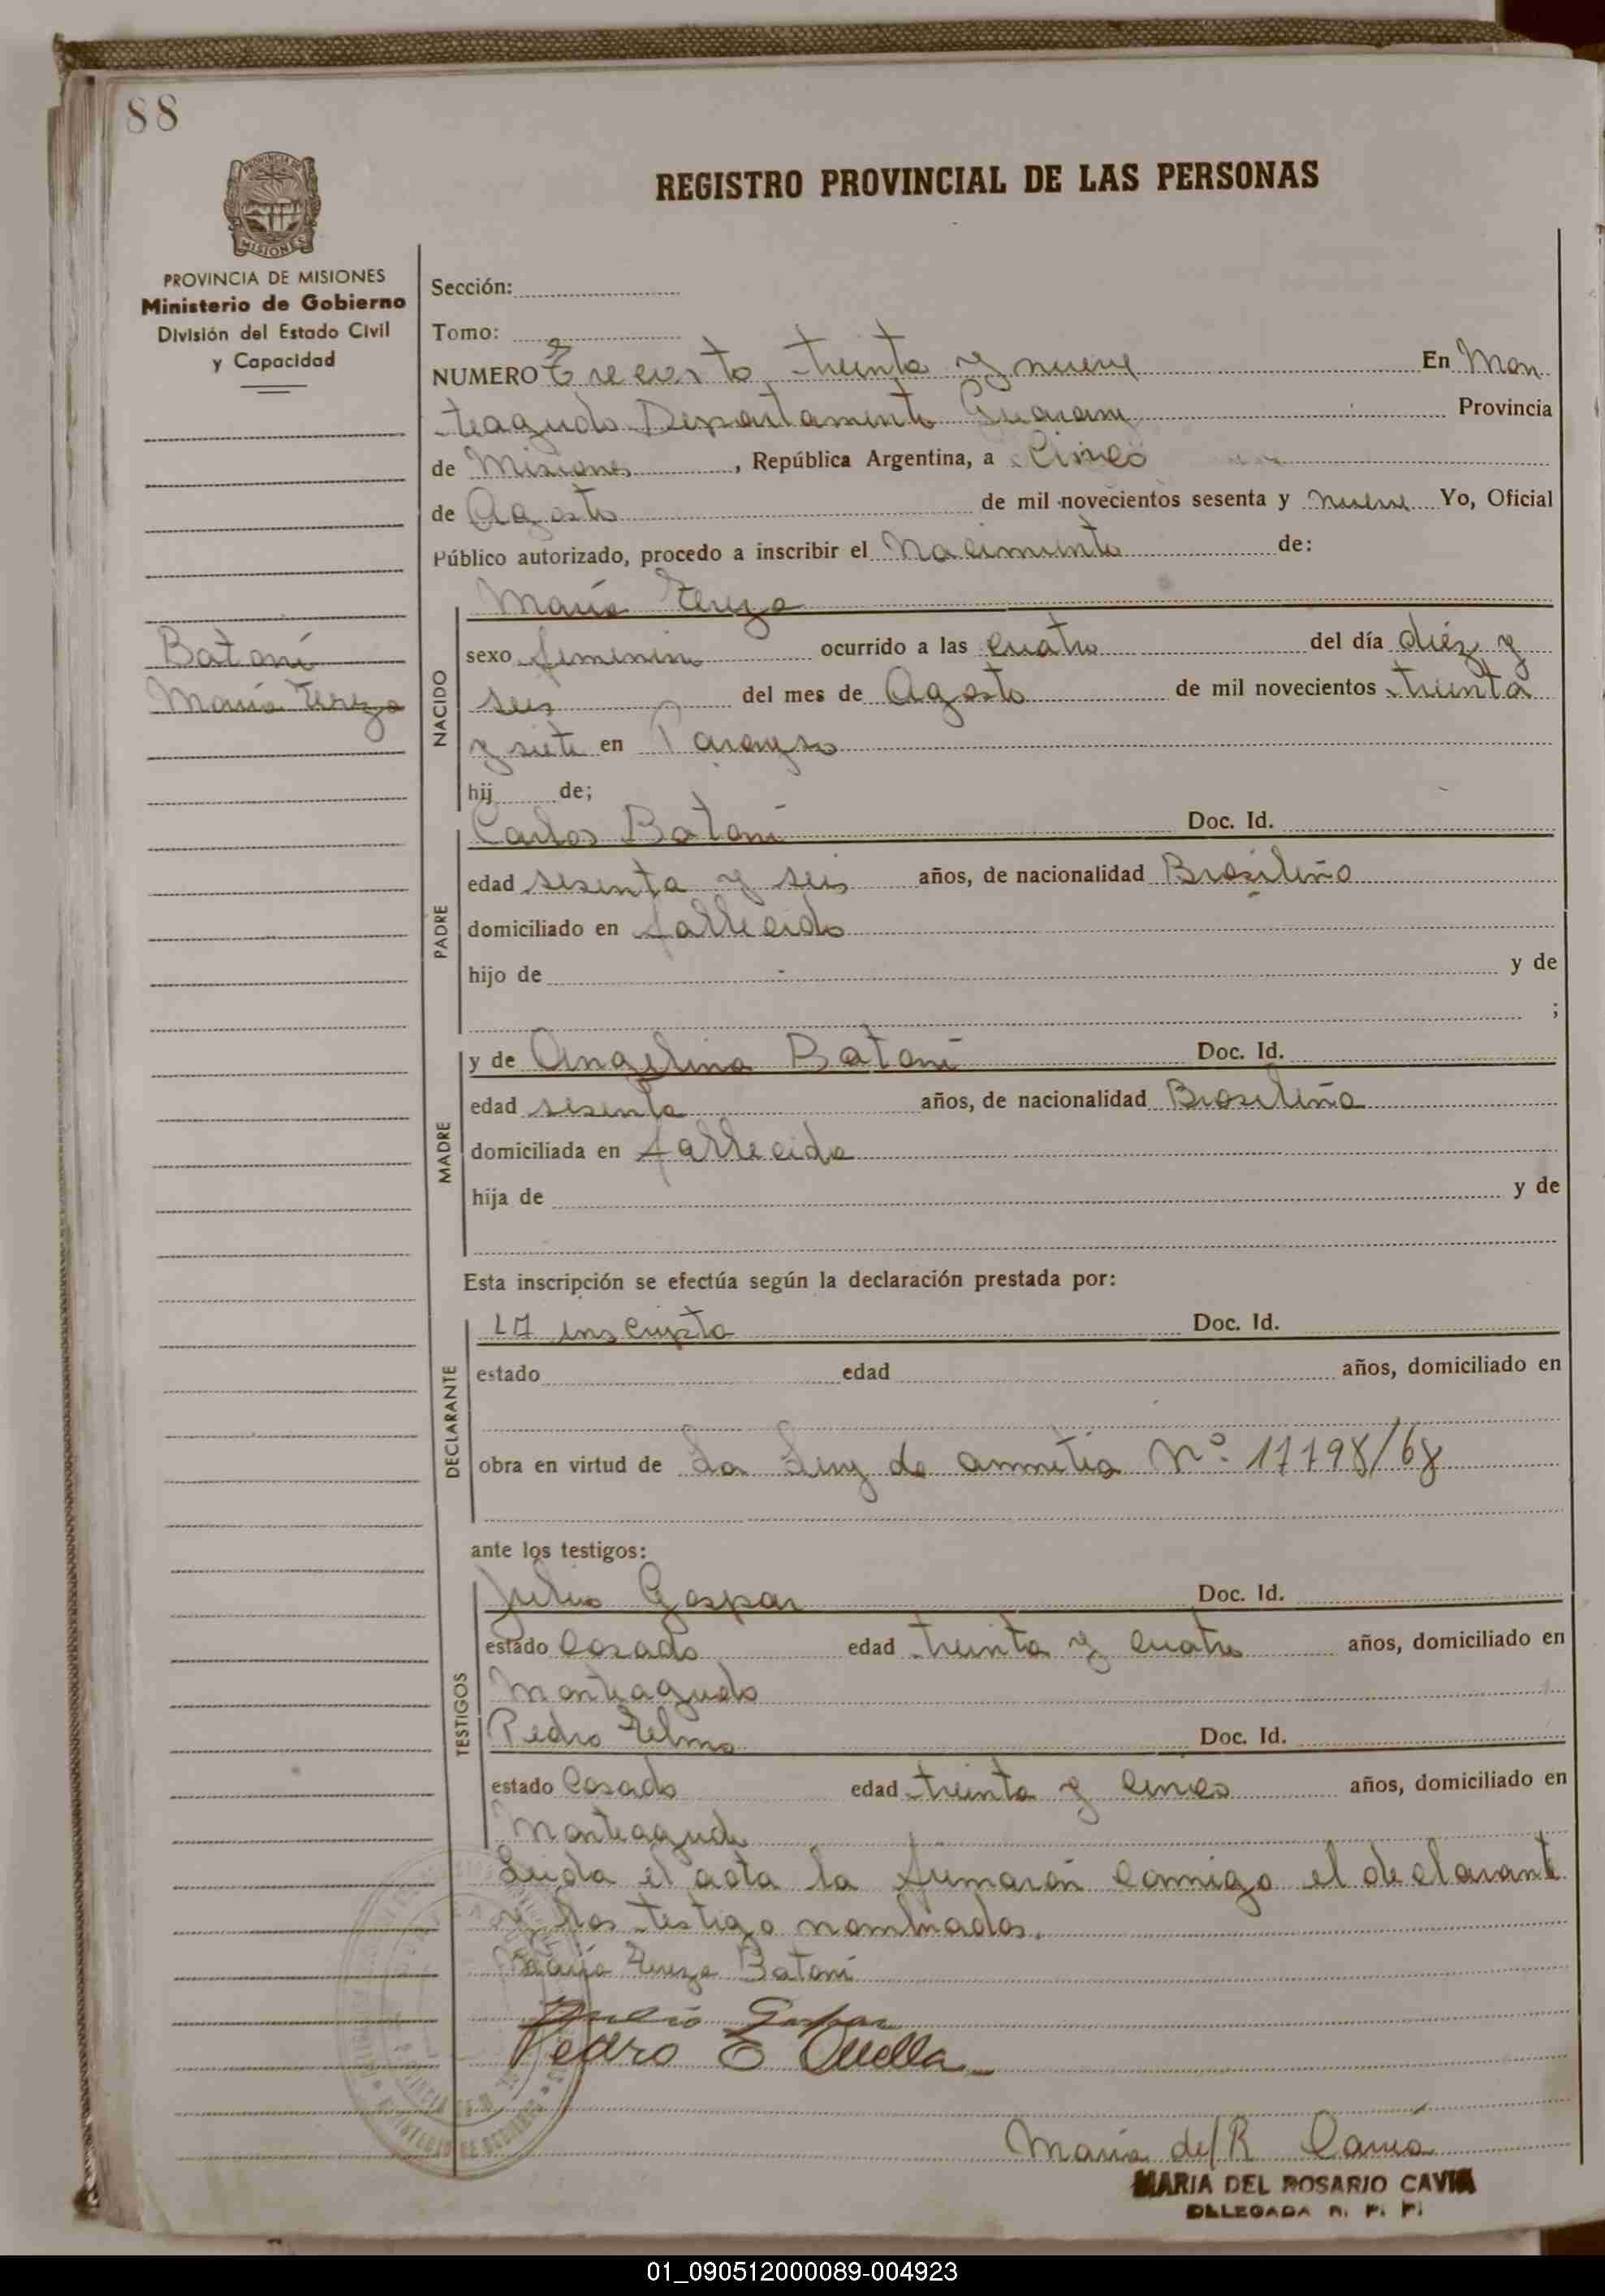 88
REGISTRO PROVINCIAL DE LAS PERSONAS
PROVINCIA DE MISIONES
Ministerio de Gobierno
División del Estado Civil
y Capacidad
Sección:
Tomo:
NUMERO treinta y nueve En Mon
teagudo Departamento Guarani Provincia
de Misiones, República Argentina, a Cinco
de Agosto de mil novecientos sesenta y nueve Yo, Oficial
Público autorizado, procedo a inscribir el Nacimiento de:
María Tereza
Batoni
María Tereza
NACIDO
sexo femenino ocurrido a las cuatro del día diez y
seis del mes de Agosto de mil novecientos treinta
y siete en Parayso
hij de;
PADRE
Carlos Batoni Doc. Id.
edad sesenta y seis años, de nacionalidad Brasileño
domiciliado en fallecido
hijo de y de
;
MADRE
y de Angelina Batoni Doc. Id.
edad sesenta años, de nacionalidad Brasileña
domiciliada en fallecida
hija de y de
Esta inscripción se efectúa según la declaración prestada por:
DECLARANTE
LA inscripta Doc. Id.
estado edad años, domiciliado en
obra en virtud de La Ley de amnetia Nº. 17798/68
ante los testigos:
TESTIGOS
Julio Gaspar Doc. Id.
estado Casado edad treinta y cuatro años, domiciliado en
Monteagudo
Pedro Telmo Doc. Id.
estado Casado edad treinta y cinco años, domiciliado en
Monteagudo
Leida el acta la firmarán conmigo el declarante
y los testigo nombrados.
María Tereza Batoni
Julio Gaspar
Pedro
María del R Cavia
MARIA DEL ROSARIO CAVIA
DELEGADA R. P. P.
01_090512000089-004923